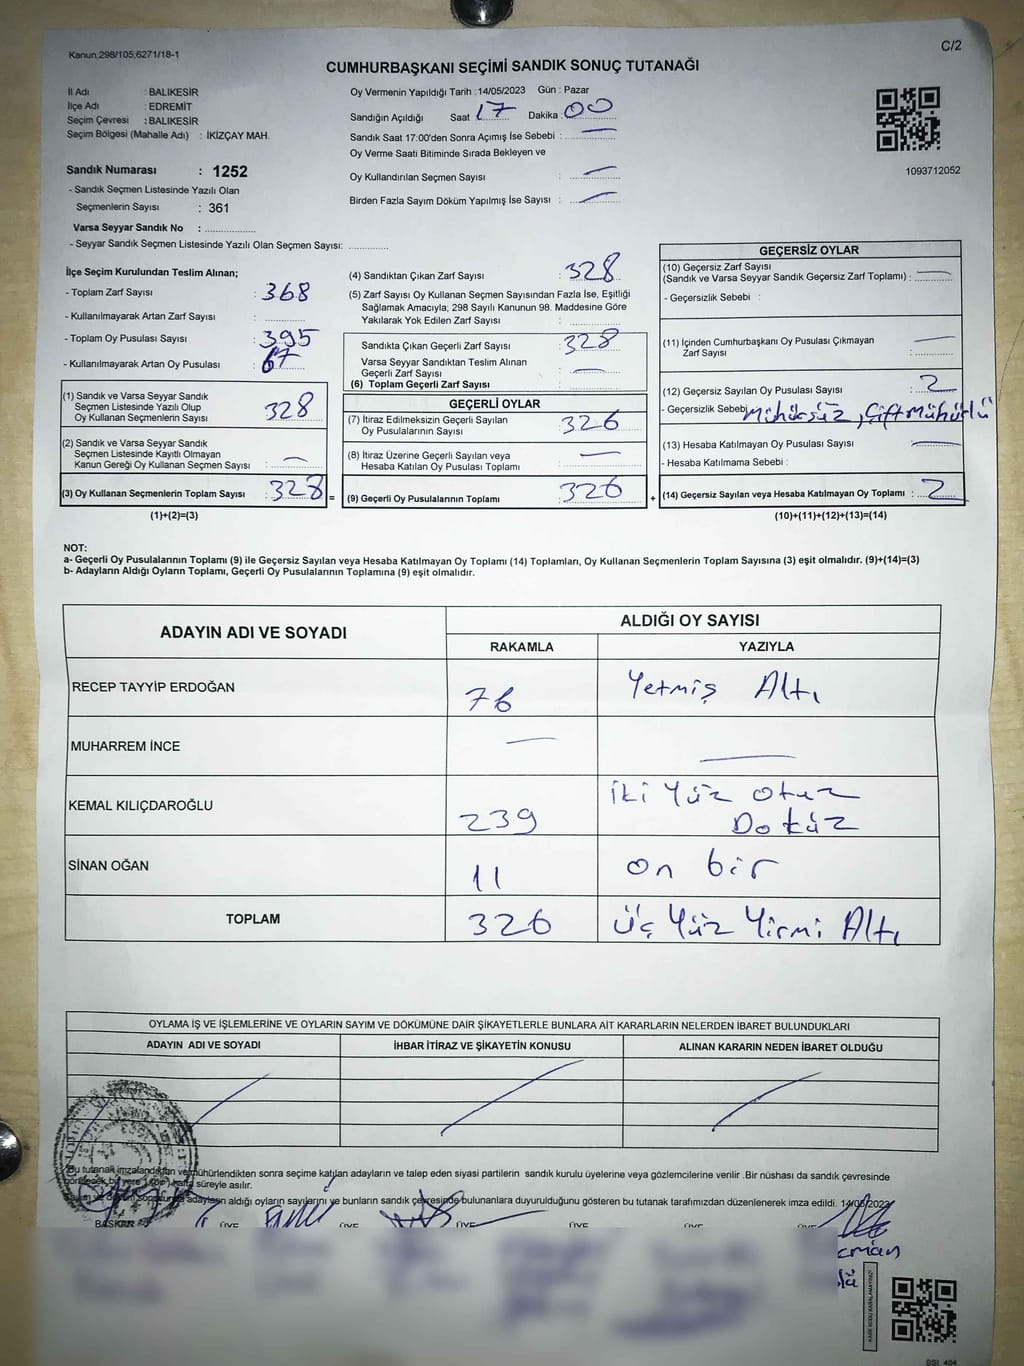 Kanun,298/105,6271/18-1
C/2
CUMHURBAŞKANI SEÇİMİ SANDIK SONUÇ TUTANAĞI
İl Adı : BALIKESİR
İlçe Adı : EDREMİT
Seçim Çevresi : BALIKESİR
Seçim Bölgesi (Mahalle Adı) : İKİZÇAY MAH.
Sandık Numarası : 1252
- Sandık Seçmen Listesinde Yazılı Olan
Seçmenlerin Sayısı : 361
Varsa Seyyar Sandık No : ..............
- Seyyar Sandık Seçmen Listesinde Yazılı Olan Seçmen Sayısı: ............
Oy Vermenin Yapıldığı Tarih : 14/05/2023 Gün : Pazar
Sandığın Açıldığı Saat 17 Dakika : 00
Sandık Saat 17:00'den Sonra Açımış İse Sebebi : —
Oy Verme Saati Bitiminde Sırada Bekleyen ve
Oy Kullandırılan Seçmen Sayısı : —
Birden Fazla Sayım Döküm Yapılmış İse Sayısı : —
1093712052
İlçe Seçim Kurulundan Teslim Alınan;
- Toplam Zarf Sayısı : 368
- Kullanılmayarak Artan Zarf Sayısı : ............
- Toplam Oy Pusulası Sayısı : 395
- Kullanılmayarak Artan Oy Pusulası : 67
(1) Sandık ve Varsa Seyyar Sandık
Seçmen Listesinde Yazılı Olup
Oy Kullanan Seçmenlerin Sayısı : 328
(2) Sandık ve Varsa Seyyar Sandık
Seçmen Listesinde Kayıtlı Olmayan
Kanun Gereği Oy Kullanan Seçmen Sayısı : —
(3) Oy Kullanan Seçmenlerin Toplam Sayısı : 328 =
(1)+(2)=(3)
(4) Sandıktan Çıkan Zarf Sayısı : 328
(5) Zarf Sayısı Oy Kullanan Seçmen Sayısından Fazla İse, Eşitliği
Sağlamak Amacıyla, 298 Sayılı Kanunun 98. Maddesine Göre
Yakılarak Yok Edilen Zarf Sayısı : ............
Sandıkta Çıkan Geçerli Zarf Sayısı : 328
Varsa Seyyar Sandıktan Teslim Alınan
Geçerli Zarf Sayısı : —
(6) Toplam Geçerli Zarf Sayısı : ............
GEÇERLİ OYLAR
(7) İtiraz Edilmeksizin Geçerli Sayılan
Oy Pusulalarının Sayısı : 326
(8) İtiraz Üzerine Geçerli Sayılan veya
Hesaba Katılan Oy Pusulası Toplamı : —
(9) Geçerli Oy Pusulalarının Toplamı : 326 +
GEÇERSİZ OYLAR
(10) Geçersiz Zarf Sayısı
(Sandık ve Varsa Seyyar Sandık Geçersiz Zarf Toplamı) : —
- Geçersizlik Sebebi :
(11) İçinden Cumhurbaşkanı Oy Pusulası Çıkmayan
Zarf Sayısı : —
(12) Geçersiz Sayılan Oy Pusulası Sayısı : 2
- Geçersizlik Sebebi Mühürsüz, Çift Mühürlü
(13) Hesaba Katılmayan Oy Pusulası Sayısı : —
- Hesaba Katılmama Sebebi :
(14) Geçersiz Sayılan veya Hesaba Katılmayan Oy Toplamı : 2
(10)+(11)+(12)+(13)=(14)
NOT:
a- Geçerli Oy Pusulalarının Toplamı (9) ile Geçersiz Sayılan veya Hesaba Katılmayan Oy Toplamı (14) Toplamları, Oy Kullanan Seçmenlerin Toplam Sayısına (3) eşit olmalıdır. (9)+(14)=(3)
b- Adayların Aldığı Oyların Toplamı, Geçerli Oy Pusulalarının Toplamına (9) eşit olmalıdır.
ADAYIN ADI VE SOYADI
ALDIĞI OY SAYISI
RAKAMLA YAZIYLA
RECEP TAYYİP ERDOĞAN 76 Yetmiş Altı
MUHARREM İNCE — —
KEMAL KILIÇDAROĞLU 239 İki Yüz Otuz
Dokuz
SİNAN OĞAN 11 On bir
TOPLAM 326 Üç Yüz Yirmi Altı
OYLAMA İŞ VE İŞLEMLERİNE VE OYLARIN SAYIM VE DÖKÜMÜNE DAİR ŞİKAYETLERLE BUNLARA AİT KARARLARIN NELERDEN İBARET BULUNDUKLARI
ADAYIN ADI VE SOYADI İHBAR İTİRAZ VE ŞİKAYETİN KONUSU ALINAN KARARIN NEDEN İBARET OLDUĞU
Bu tutanak imzalandıktan ve mühürlendikten sonra seçime katılan adayların ve talep eden siyasi partilerin sandık kurulu üyelerine veya gözlemcilerine verilir .Bir nüshası da sandık çevresinde
süreyle asılır.
adayların aldığı oyların sayılarını ve bunların sandık çevresinde bulunanlara duyurulduğunu gösteren bu tutanak tarafımızdan düzenlenerek imza edildi. 14/05/2023
BAŞKAN ÜYE ÜYE ÜYE ÜYE ÜYE ÜYE